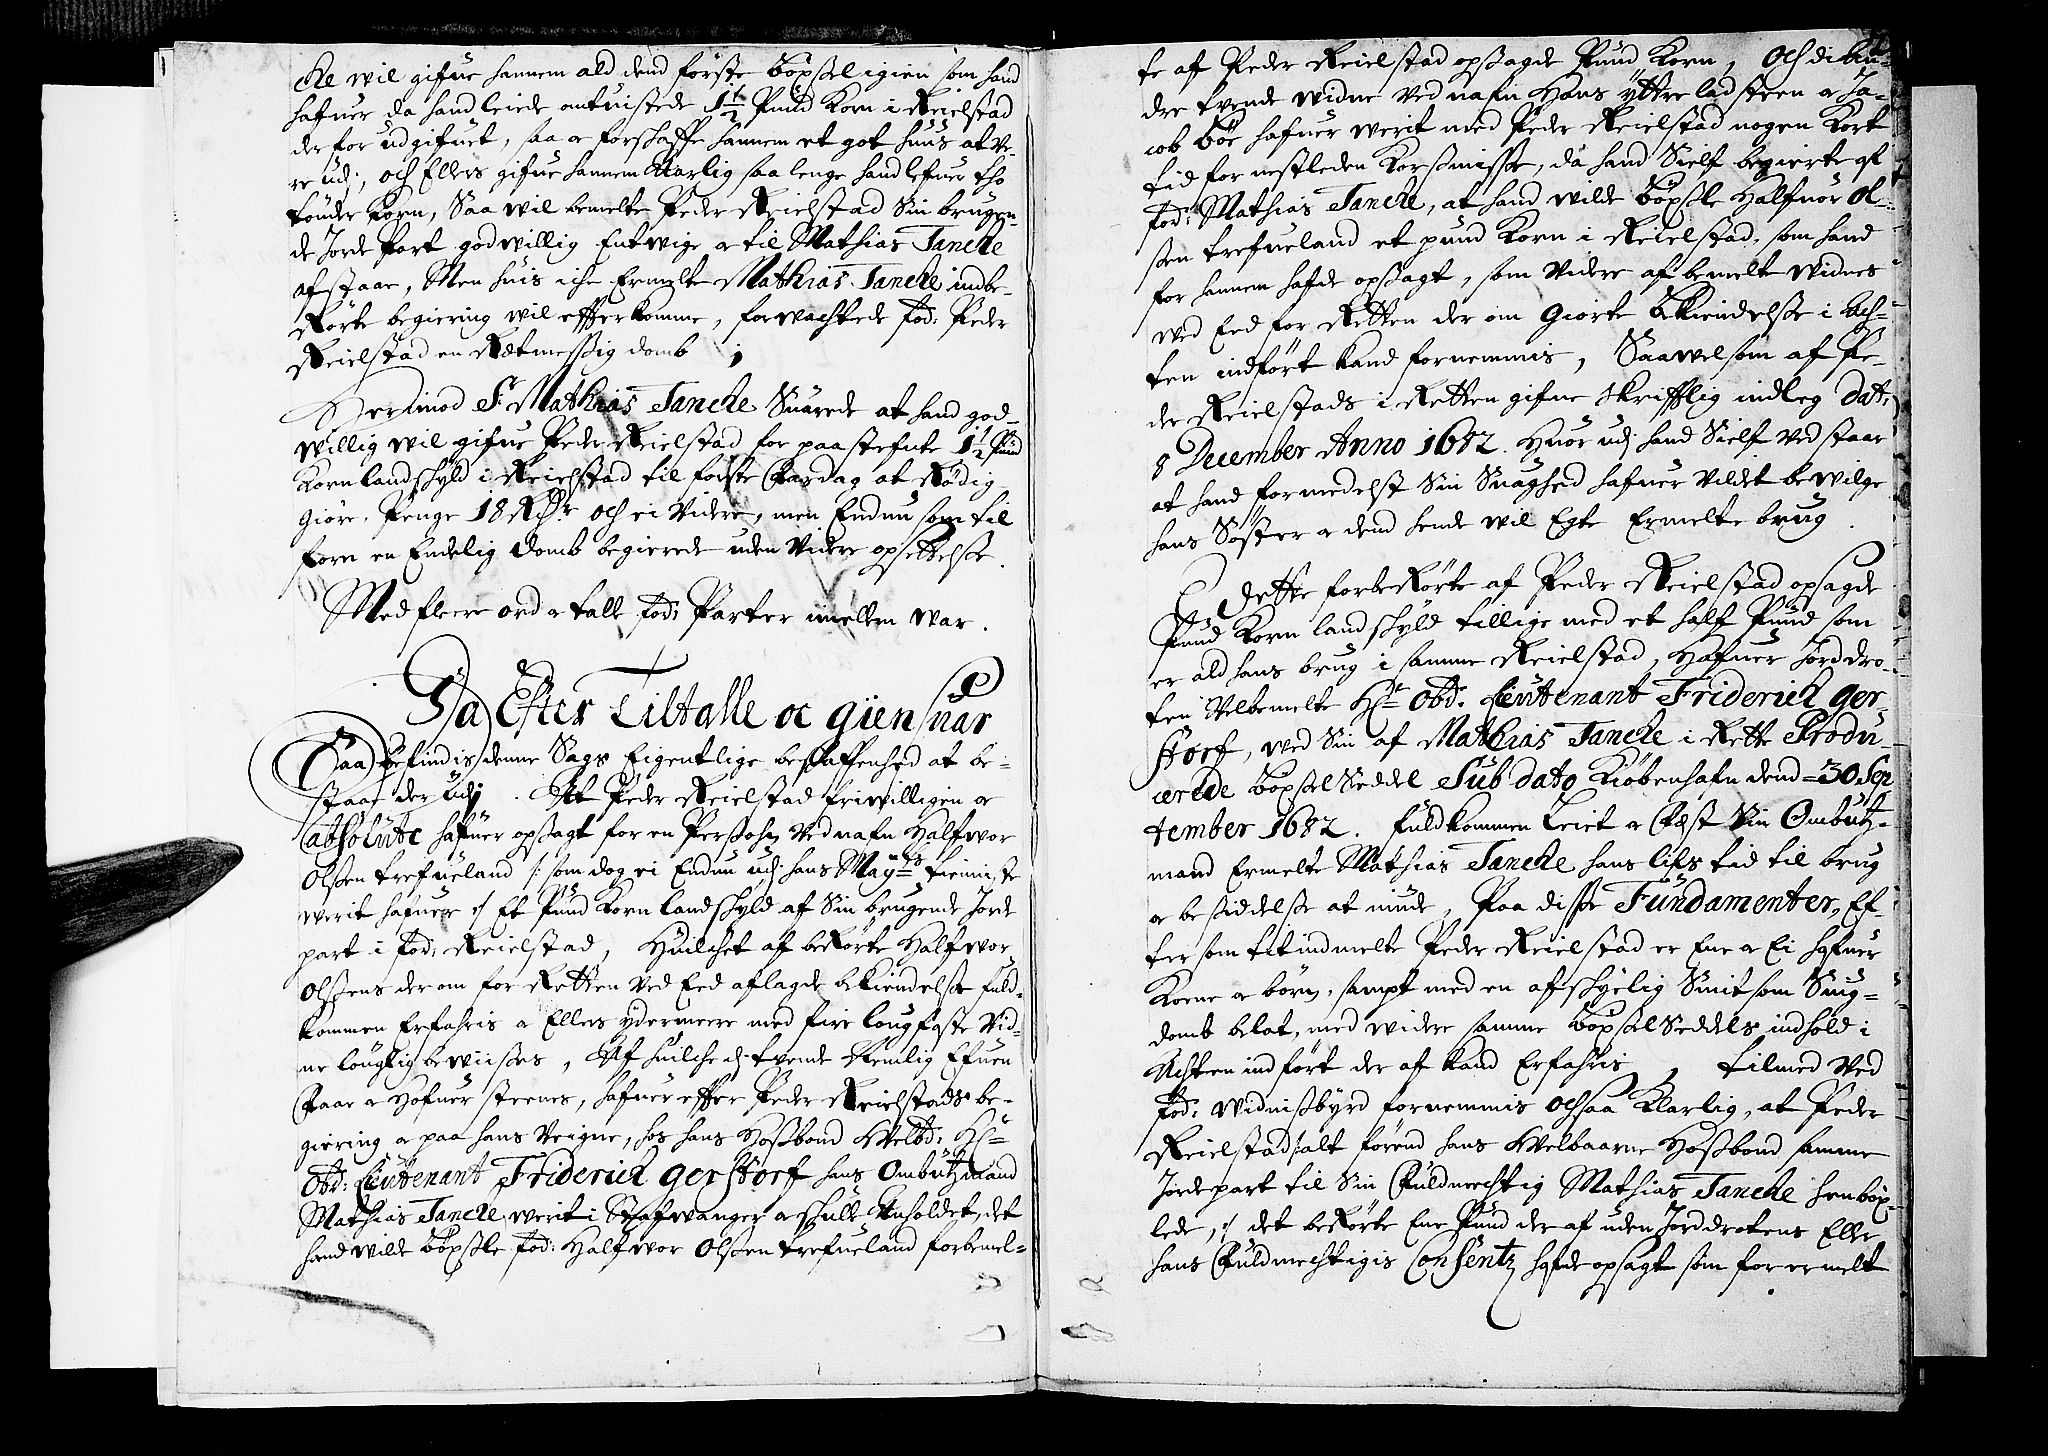 che wil gifue hannem ald dend förste böxsel igien som hand
hafuer da hand leiede omtuistede 1½ Pund Korn i Reielstad
der for udgifuet, saa & forschaffe hannem et got huus at we-
re udj, och Ellers gifue hannem Aarlig saa lenge hand lefuer tho
tönder Korn, Saa wil bemelte Peder Reielstad Sin brugen-
de Jorde Part godwillig Entwige & til Mathias Tancke
afstaar, Men huis iche Ermelte Mathias Tancke indbe-
rörte begiering wil effterkomme, forwachtede fod: Peder
Reielstad en Retmessig domb
Herimod Sr: Mathias Tancke Suarede at hand god-
willig wil gifue Peder Reielstad for paastefnte 1½ Pund
Korn landschyld i Reielstad til förste Fardag at Rödig-
giöre. Penge 18 Rdr och ei Videre, men Endnu som til
forn en Endelig domb begierede uden Videre opsettelse.
Med fleere ord & talle fod: Parter imellem war.
Da Efter Tiltalle oc giensuar
Saa befindis denne Sags Eigentlige beschaffenhed at be-
staar der Udj. At Peder Reielstad friwilligen &
absolute hafuer opsagt for en Perssohn Ved nafn Halfwor
Olssen trefueland /: som dog ei Endnu udj hans Mayts tienniste
werit hafuer :/ Et Pund Korn landschyld af Sin brugende Jorde
part i fod: Reielstad, Huilchet af berörte Halfwor
Olssens der om for Retten ved Eed aflagde bekiendelsse fuld-
kommen Erfahris & Ellers ydermeere med fire lougfaste Vid-
ne louglig bewiisses, Af huilche di tvende Nemlig Efuen
Aaar & Hofuer steenes, hafuer effter Peder Reielstads be-
giering & paa hans Veigne, hos hans Hossbond Welbd: Hr
Obr: Lieutenant Friderich Gerstorf hans Ombutzmand
Mathias Tancke werit i Stafwanger & schulle Anholdet, det
hand wilde böxsle fod: Halfwor Olssen trefueland forbemel-
te af Peder Reielstad opsagde Pund Korn, Och di An-
dre tvende widne ved nafn Hans yttre ladsteen & Ja-
cob böe hafuer werit med Peder Reielstad nogen Kort
tid for nestleden Korssmisse, da hand Sielf begierte af
fod: Mathias Tancke, at hand wilde böxsle Halfuor Ol-
ssen trefueland et pund Korn i Reielstad, som hand
for hannem hafde opsagt, som Videre af bemelte widnes
ved Eed for Retten der om Giorte bekiendelsse i Ach-
ten indfört kand fornemmis, Saawelsom af Pe-
der Reielstads i Retten gifne skrifftlig indleg dat:
8 December Anno 1682. Huor udj hand Sielf Ved staar
at hand formedelst Sin Suaghed hafuer Villet bewilge
hans Söster & dend hende wil Egte Ermelte brug.
Dette forberörte af Peder Reielstad opsagde
Pund Korn landschyld tillige med et half Pund som
er ald hans brug i samme Reielstad, Hafuer Jorddro-
ten Velbemelte Hr Obr: Lieutenant Friderich Ger-
storf, ved Sin af Mathias Tancke i Rette Produ-
cerede böxsel Seddel Sub dato Kiöbenhafn dend 30 Sep
tember 1682. fuldkommen Leiet & Fæst Sin Ombutz-
mand Ermelte Mathias Tancke hans lifs tid til brug
& besiddelsse at niude, Paa disse Fundamenter, Ef-
ter som titindmelte Peder Reielstad er Ene & Ei hafuer
Kone & börn, sampt med en afschyelig Smitsom Siug-
domb belat, med widere samme böxsel Seddels indhold i
Achten indfört der af kand Erfahris, tilmed Ved
fod: widnissbyrd fornemmis ochsaa Klarlig, at Peder
Reielstad alt förend hans Welbaarne Hossbond samme
Jordepart til Sin Fuldmechtig Mathias Tancke henböx-
lede, :/ det berörte Ene Pund der af uden Jorddrotens Eller
hans Fuldmechtigis Consentz hafde opsagt som for ermelt